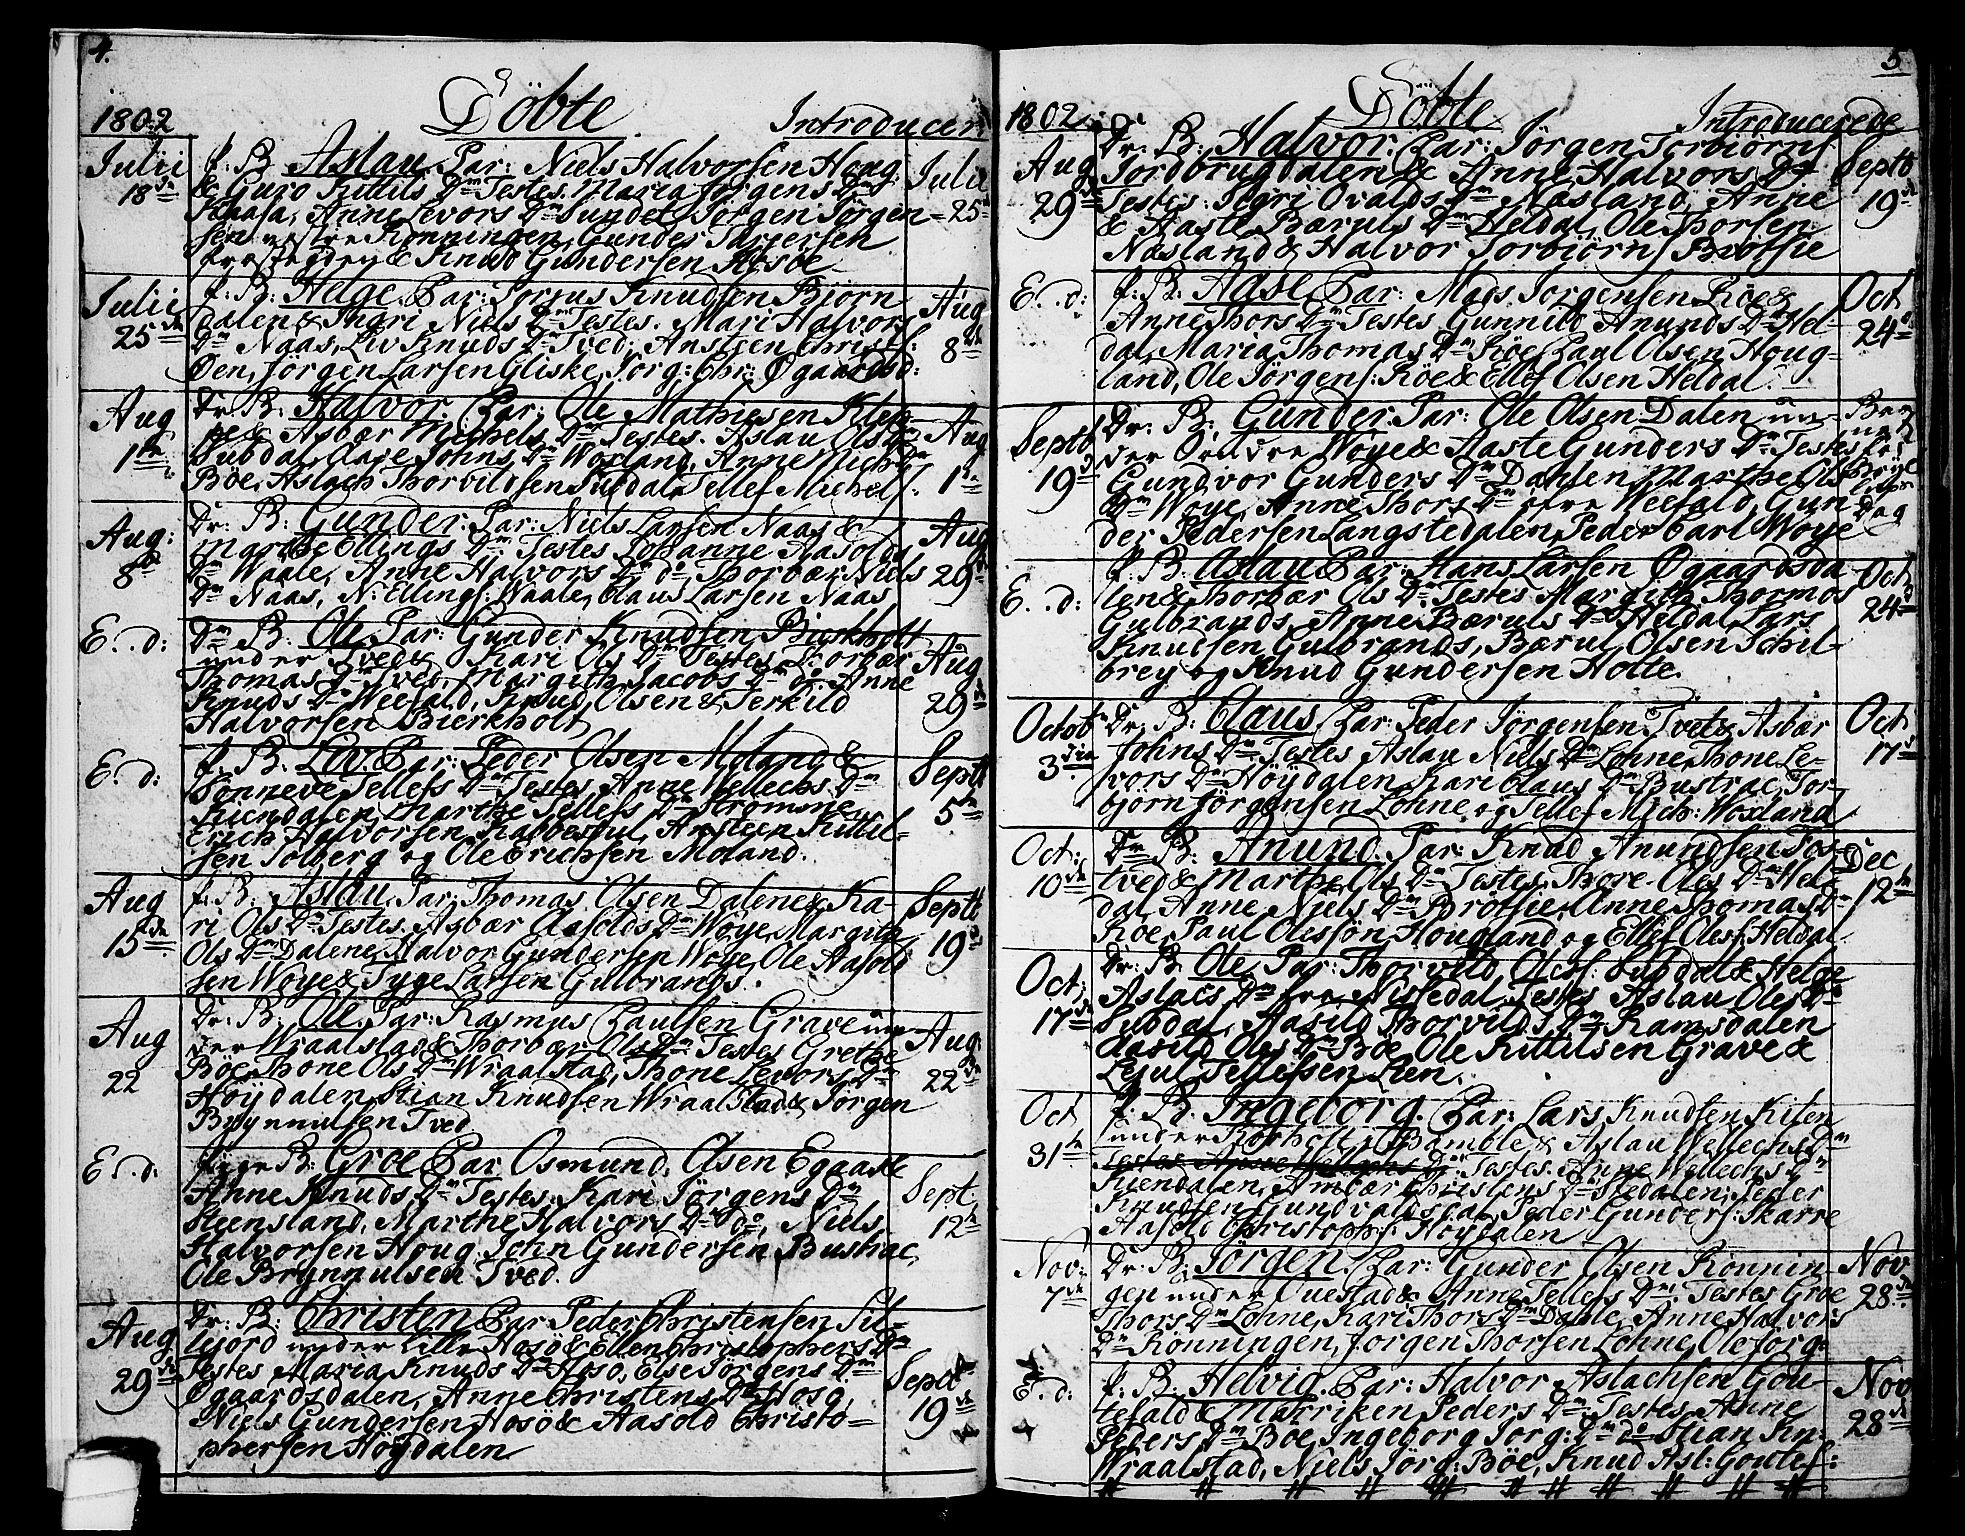 4.
1802 Döbte Introducer
Julii 18de P. B. Aslau. Par: Niels Halvorsen Houg Julii
& Guro Kittils Dr Testes. Maria Jörgens Dr
Haasa, Anne Levors Dr Sundet, Jörgen Jörgen= 25
sen vestre Rönningen, Gunder Tarjersen
& Knud Gundersen Aasöe
Julii 25de P. B: Helge. Par: Porsus Knudsen Biörn Aug
dalen & Ingri Niels Dr Testes. Mari Halvors
Dr Naas, Liv Knuds Dr Tved, Anstjen Christf: 8de
Öen, Jörgen Larsen Gliske, Jörg: Chr: Øgaardsd:
Aug 1te Dr. B: Halvor. Par: Ole Mathiesen Klep
pe & Asbær Michels Dr Testes. Aslau Ols Dr Aug
Subdal, Aase Johns Dr Woxland, Anne Mich:
Böe, Aslach Thorvildsen Subdal, Tellef Michels: 1te
Aug: 8de Dr: B: Gunder. Par: Niels Larsen Naas &
Marthe Ellings Dr Testes Johanne Aasolds Aug
Dr Waale, Anne Halvors Dr do, Thorbær Niels 29
Dr Naas, N: Ellings: Waale, Claus Larsen Naas
E..d: Dr B: Ole. Par: Gunder Knudsen Bierkholt
under Tved & Kari Ols Dr Testes Thorbær Aug
Thomas Dr Tved, Margith Jacobs Dr do, Anne
Knuds Dr Weefald, Knud Olsen & Terkild 29
Halvorsen Bierkholt
E..d: P. B. Lev. Par: Peder Olsen Moland & Septb
Sönneve Tellefs Dr Testes Anne Wellechs Dr
Kiendalen, Marthe Tellefs Dr Strömme, 5te
Erich Halvorsen Kabbestul, Ansteen Kittil-
sen Solberg og Ole Erichsen Moland.
Aug 15de P. B: Aslau. Par: Thomas Olsen Dalene & Ka- Septb
ri Ols Dr Testes. Asbær Aasolds Dr Wöye, Margith
Ols Dr Dalene, Halvor Gundersen Wöye, Ole Aasold 19
sen Wöye & Tyge Larsen Gulbrands.
Aug 22 Dr. B: Ole. Par: Rasmus Paulsen Grave un-
der Wraalstad & Thorbær Ols Dr Testes Grethe Aug
Böe, Thone Ols Dr Wraalstad, Thone Levors Dr 22
Höydalen, Stian Knudsen Wraalstad & Jörgen
Brynnulsen Tved
E..d: B: Groe. Par Osmund Olsen Egaase
Anne Knuds Dr Testes. Kari Jörgens Dr Sept
Steensland, Marthe Halvors Dr do, Niels 12te
Halvorsen Houg, John Gundersen Bustrac,
Ole Brynnulsen Tved.
Aug 29de Dr: B: Christen Par Peder Christensen Sil-
liford under Lille Hosö & Ellen Christophers Dr
Testes Maria Knuds Dr Hosö, Else Jörgens Dr Septb
Øgaardsdalen, Anne Christens Dr Hosö, 19
Niels Gundersen Hosö & Aasold Christo=
phersen Höydalen
5
1802 Döbte Introducerede
Aug 29de Dr. B: Halvor. Par: Jörgen Torbiörns Septb
Jordbrugdalen & Anne Halvors Dr
Testes: Segri Ovalds Dr Næsland, Anne 19
& Aaste Bæruls Dr Heldal, Ole Thorsen
Næsland & Halvor Torbiörns Bröttie
E..d: P. B: Aase. Par: Mads Jörgensen Röe & Oct
Anne Thors Dr Testes Gunnild Anunds Dr Hel-
dal, Maria Thomas Dr Röe, Paul Olsen Houg- 24
land, Ole Jörgens: Röe & Ellef Olsen Heldal.
Septb 19de Dr: B: Gunder. Par: Ole Olsen Dalen un-
der Öendre Wöye & Aaste Gunders Dr Testes
Gundvor Gunders Dr Dahlen, Marthe Ols
Dr Wöye, Anne Thors Dr öfre Weefald, Gun Dag
der Pedersen Langstedalen, Peder Carl Wöye
E..d: P. B: Aslau. Par: Hans Larsen Øgaardsda Oct
len & Thorbær Ols Dr Testes Margith Thormos
Gulbrands, Anne Bæruls Dr Heldal, Lars 24
Knutsen Gulbrands, Bærul Olsen Schil-
brey og Knud Gundersen Holte.
Octob 3die Dr: B: Claus. Par: Peder Jörgensen Tvet & Asbær Oct
Johns Dr Testes Aslau Niels Dr Lohne, Thone Le- 17
vors Dr Höydalen, Kari Claus Dr Bustrac, Tor-
björn Jörgensen Lohne og Tellef Mich: Woxland
Oct: 10de Dr. B: Anund. Par: Knud Anundsen Tos- Dec
tved & Marthe Ols Dr Testes. Thore Oles Dr Hel- 12te
dal, Anne Niels Dr Bröttie, Anne Thomas Dr
Röe, Paul Olesson Hougland og Ellef Oless: Heldal
Oct: 17de Dr: B: Ole. Par: Thorvild Oless: Subdal & Helge
Aslacs Dr fra Nissedal, Testes Aslau Oles Dr
Subdal, Aasild Thorvilds Dr Ramsdalen
Aasild Oles Dr Böe, Ole Kittilsen Grave &
Lejul Tellefsen Lien.
Oct 31te P. B. Ingeborg. Par: Lars Knudsen Kiten
under Bamble & Aslau Wellechs Dr
Dr. Testes. Anne Wellechs Dr
Kiendalen, Ambær Christens Dr Stedalen, Peder
Knudsen Gundvaldsdal, Peder Gunders: Skarre
Aasold Christophs: Höydalen
Nov: 7de Dr. B. Jörgen. Par: Gunder Olsen Rönnin- Nov
gen under Ouestad & Anne Tellefs Dr: Testes Groe
Thors Dr Lohne, Kari Thors Dr Dahle, Anne Halvors 28
Dr Rönningen, Jörgen Thorsen Lohne, Ole Jörg:
E..d: P. B. Helvig. Par: Halvor Aslachsen Gou- Nov
tefald & Marriken Peders Dr: Testes. Anne
Peders Dr Böe, Ingeborg Jörg: Dr do Stian Kn: 28
Wraalstad, Niels Jörg: Böe, Knud Asl: Goutef:
# # # # # # # # # # #